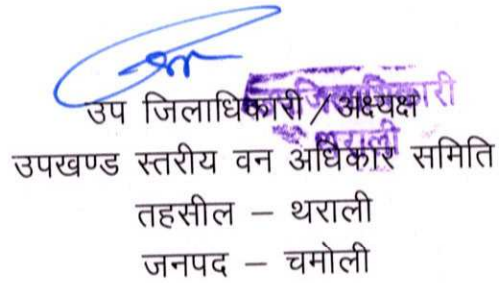 उप जिलाधिकारी / अध्यक्ष
उपखण्ड स्तरीय वन अधिकार समिति
तहसील – थराली
जनपद – चमोली